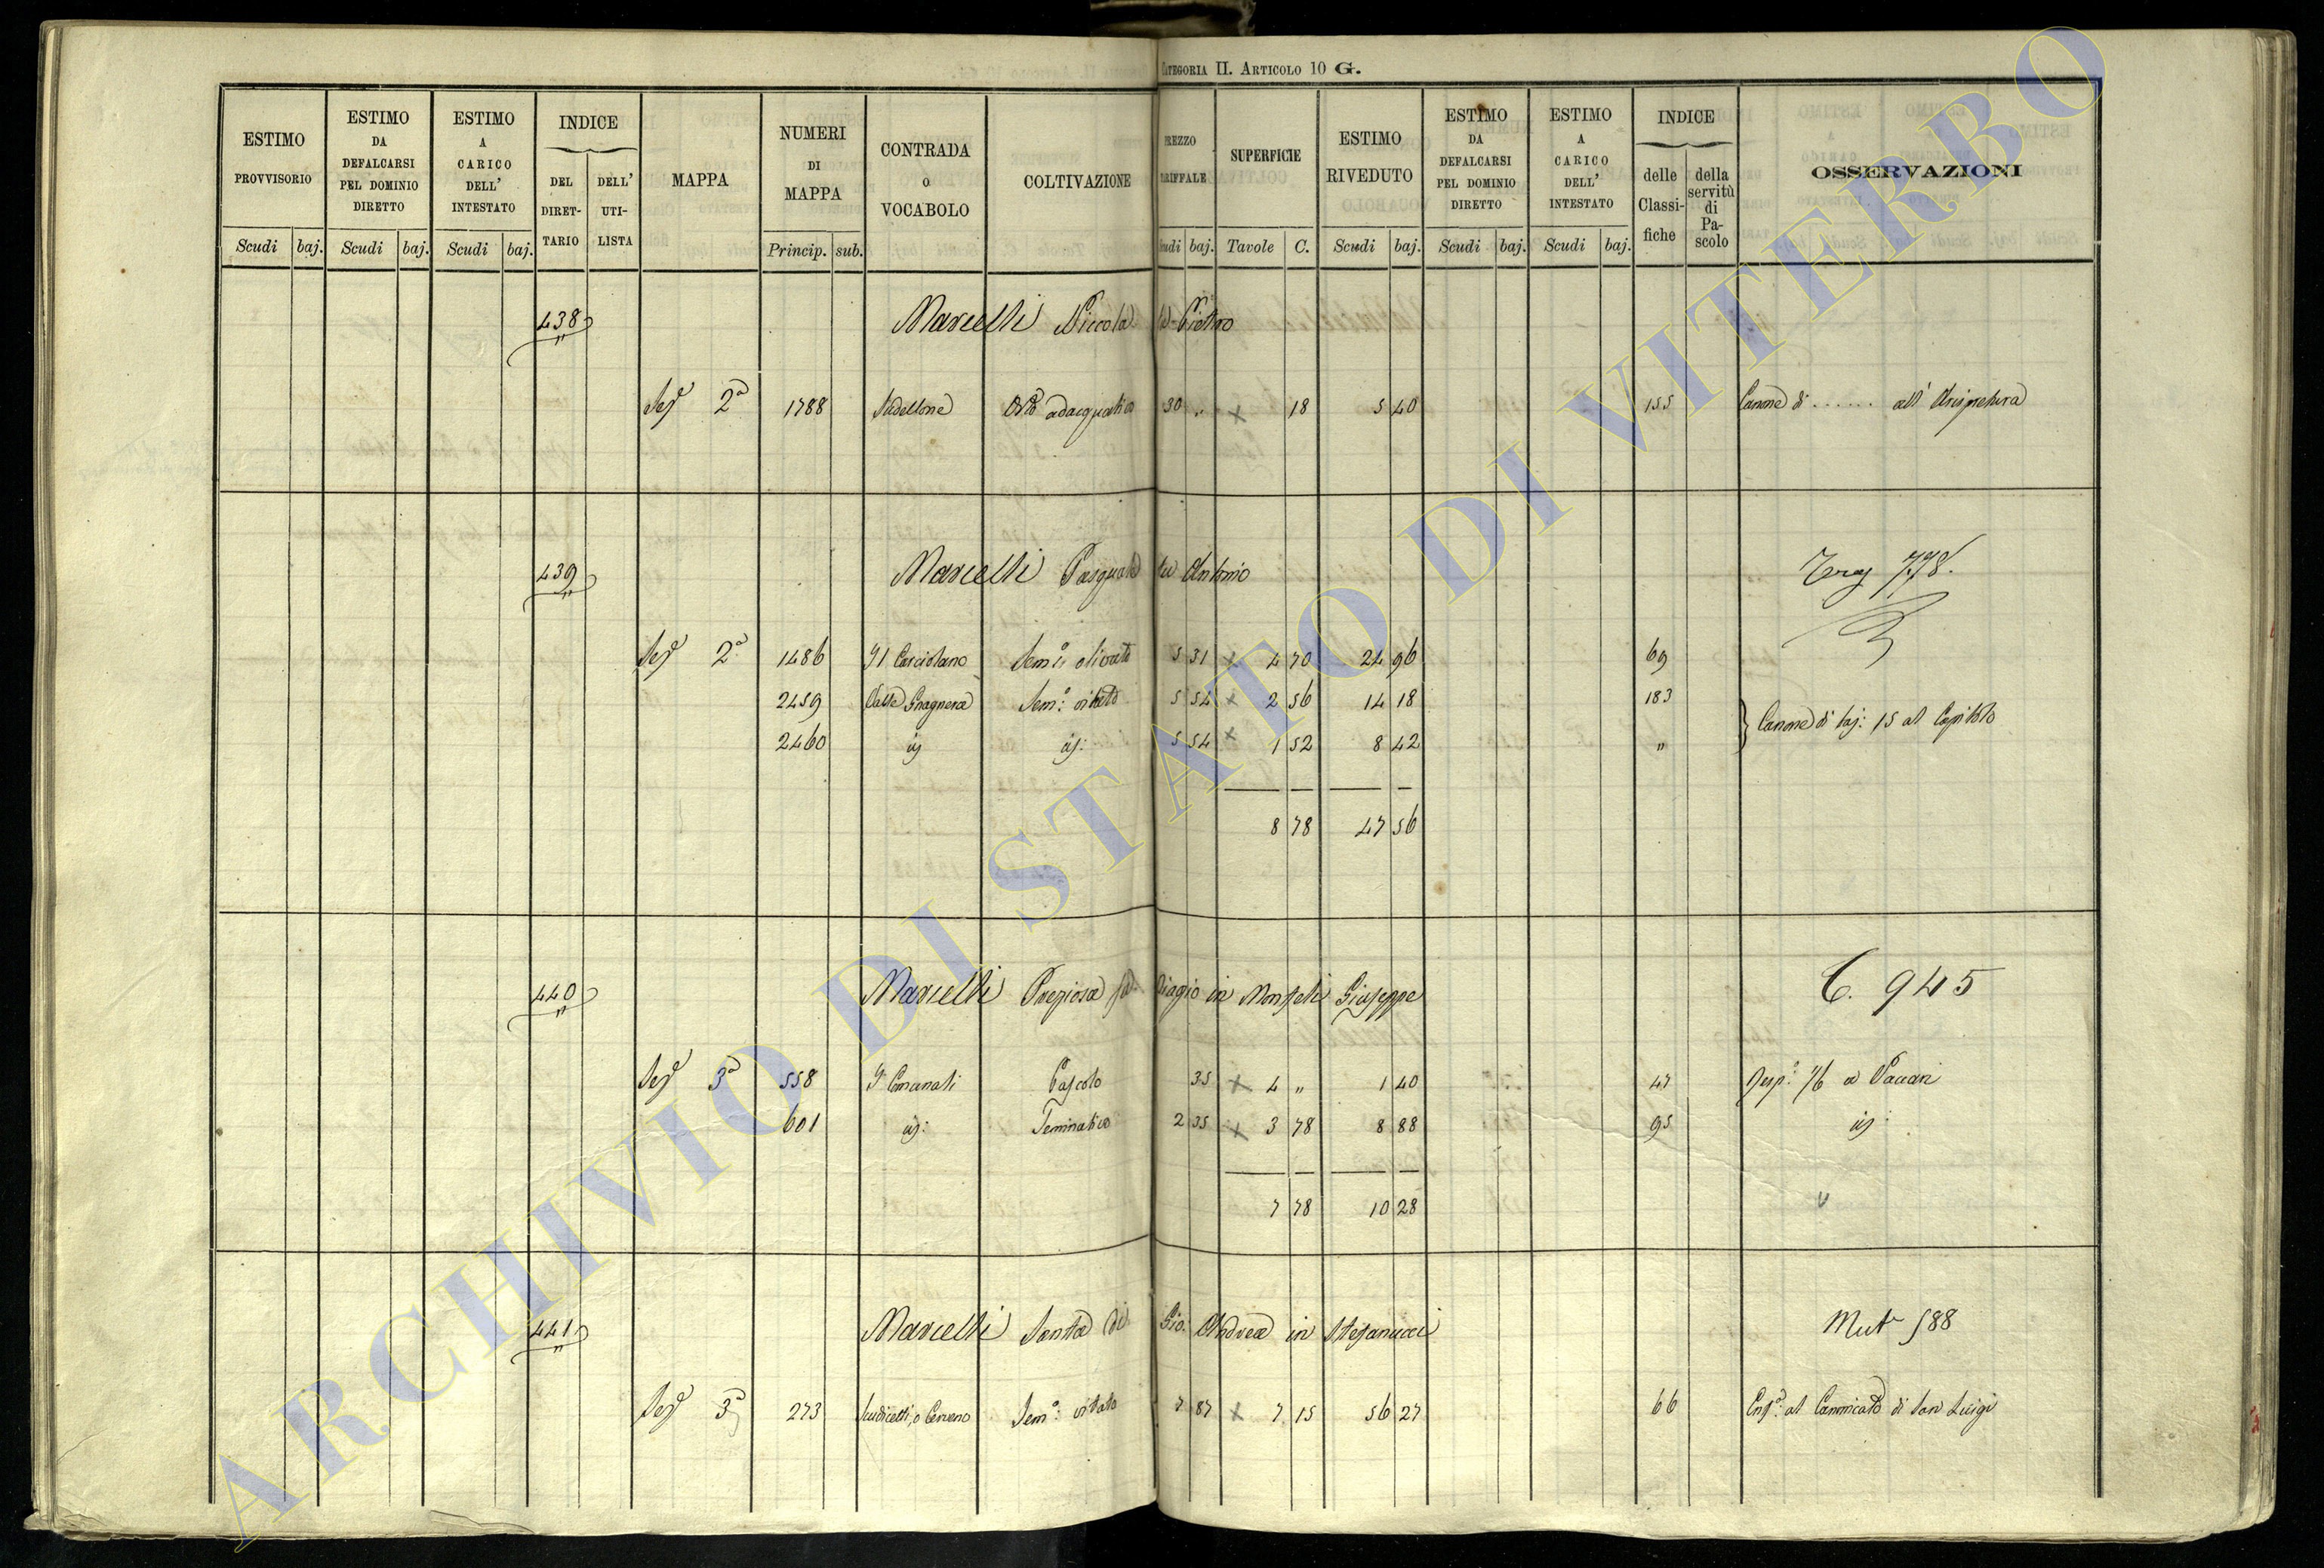 CATEGORIA II. ARTICOLO 10 G.
ESTIMO PROVVISORIO
ESTIMO DA DEFALCARSI PEL DOMINIO DIRETTO
ESTIMO A CARICO DELL' INTESTATO
INDICE
DEL DIRET-TARIO
DELL' UTI-LISTA
MAPPA
NUMERI DI MAPPA
CONTRADA O VOCABOLO
COLTIVAZIONE
PREZZO TARIFFALE
SUPERFICIE
ESTIMO RIVEDUTO
ESTIMO DA DEFALCARSI PEL DOMINIO DIRETTO
ESTIMO A CARICO DELL' INTESTATO
INDICE
delle Classi-fiche
della servitù di Pa-scolo
OSSERVAZIONI
Scudi baj. Scudi baj. Scudi baj. Princip. sub. Scudi baj. Tavole C. Scudi baj. Scudi baj. Scudi baj.
438 Marcelli Niccola di Pietro
Sez. 2a 1788 Orto adacquativo 30 " x 18 5 40 155 Canone di ...... all'
439 Marcelli Pasquale fu Antonio 778.
Sez. 2a 1486 Sem: olivato 5 31 x 4 70 24 96 69
2459 Valle Sem: vitato 5 54 x 2 56 14 18 183
2460 5 54 x 1 52 8 42 " Canone di baj: 15 al Capitolo
8 78 47 56
440 Marcelli Preziosa Biagio in Giuseppe C. 945
Sez. 3a 558 Pascolo 35 x 4 " 1 40 47
601 Seminativo 2 35 x 3 78 8 88 95
7 78 10 28
441 Marcelli Santa di Gio. Andrea in Stefanucci Mut 588
Sez. 3a 273 Sem: vitato 7 87 x 7 15 56 27 66 al Canonicato di San Luigi
ARCHIVIO DI STATO DI VITERBO